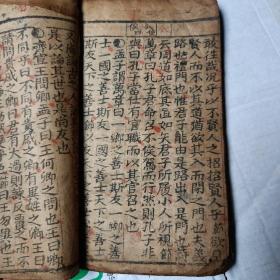 敢往哉況乎以不賢人之招招賢人乎欲見
賢人而不以其道猶欲其入而閉之門也夫義
路也禮門也惟君子能由是路出入是門也詩
云周道如底其直如矢君子所履小人所視
萬章曰孔子君命召不俟駕而行然則孔子非
與曰孔子當仕有官職而以其官召之也
孟子謂萬章曰一鄉之善士斯友一鄉之善士
一國之善士斯友一國之善士天下之善士
斯友天下之善士
是以論其世也是尚友也
齊宣王問卿孟子曰王何卿之問也王曰卿
不同乎曰不同有貴戚之卿有異姓之卿王曰
請問貴戚之卿曰君有大過則
勿異也王